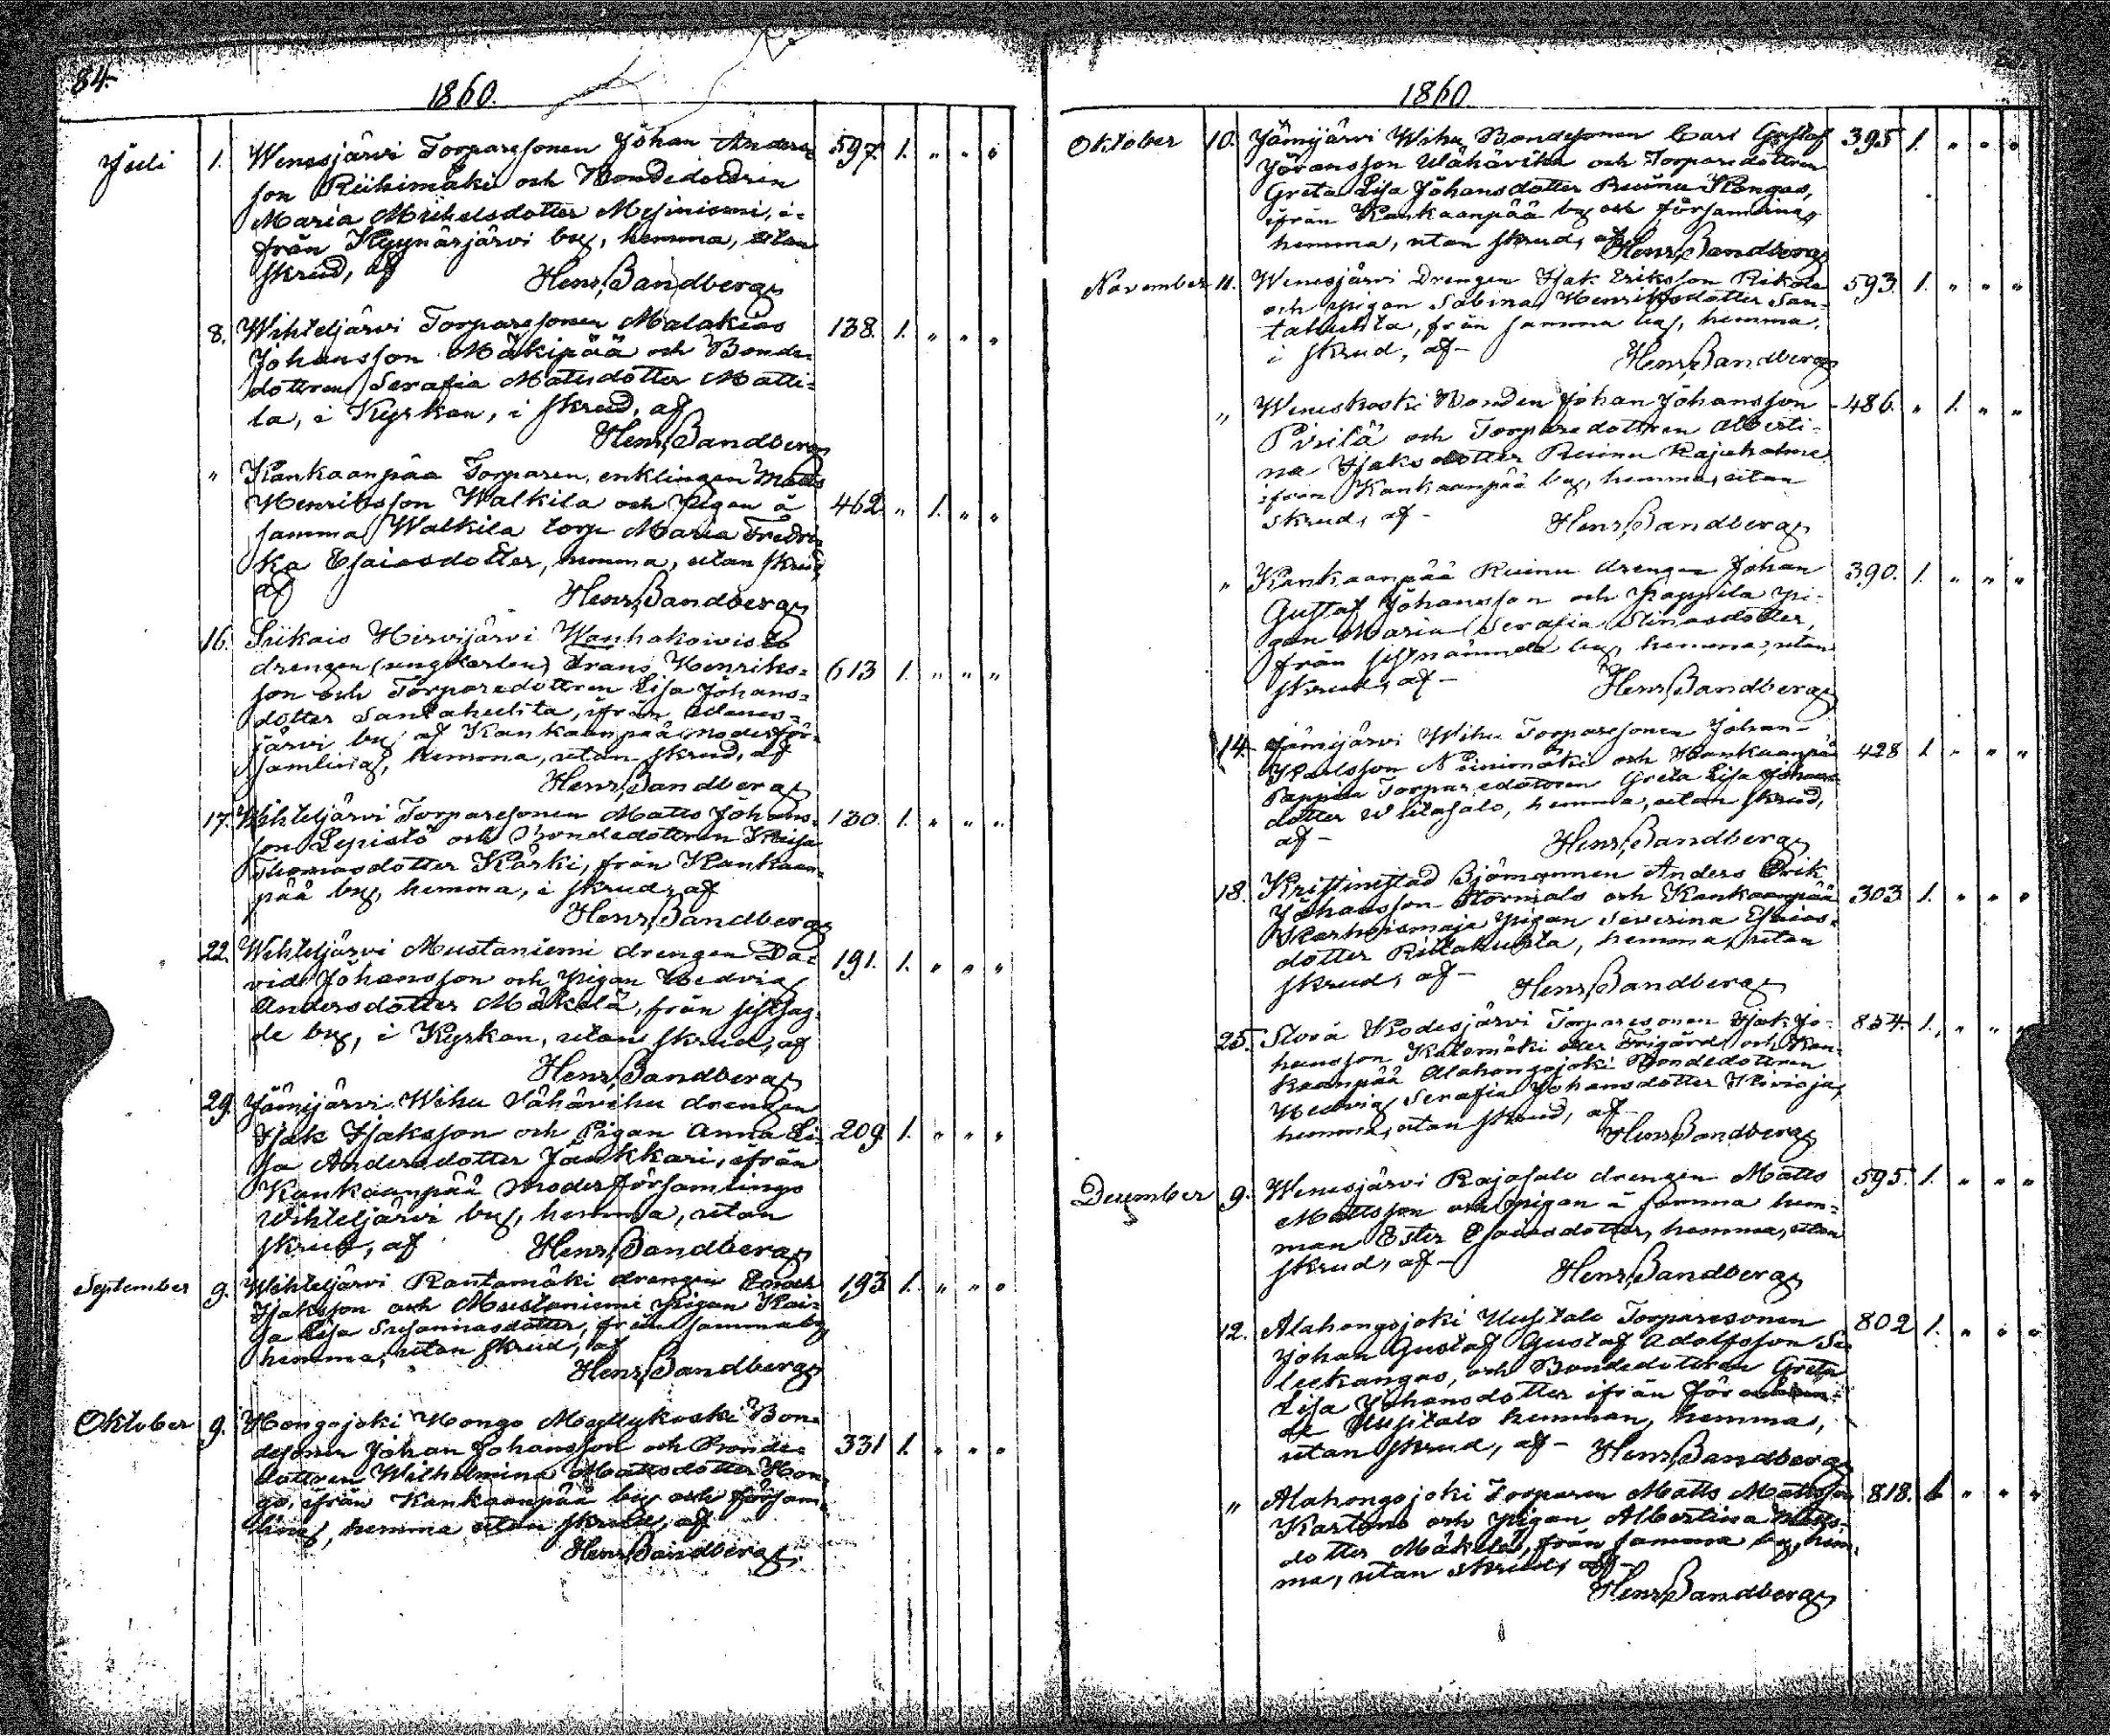 84.
1860.
Juli 1. Wenesjärvi Torparesonen Johan Anders-
son Riihimäki och Bondedottren
Maria Michelsdotter Mesiniemi, i-
från Kyynärjärvi by, hemma, utan
skrud, af
Henr. Sandberg
597. 1. " " "
8. Wihteljärvi Torparesonen Malakias
Johansson Mäkipää och Bonde-
dottren Serafia Matsdotter Matti-
la, i Kyrkan, i skrud, af
Henr. Sandberg
138. 1. " " "
" Kankaanpää Torparen, enklingen Matts
Henriksson Walkila och Pigan å
samma Walkila torp Maria Fredri-
ka Esaiasdotter, hemma, utan skrud,
af
Henr. Sandberg
462. " 1. " "
16. Siikais Hirvijärvi Wanhakoivisto
drengen (ungkarlen) Frans Henriks-
son och Torparedottren Lisa Johans-
dotter Santahuhta, ifrån Wenes-
järvi by af Kankaanpää moderför-
samling, hemma, utan skrud, af
Henr. Sandberg
613 1. " " "
17. Wihteljärvi Torparesonen Matts Johans-
son Lepistö och Bondedottren Kaisa
Thomasdotter Kärki, från Kankaan-
pää by, hemma, i skrud, af
Henr. Sandberg
130. 1. " " "
22. Wihteljärvi Mustaniemi drengen Da-
vid Johansson och Pigan Hedvig
Andersdotter Mäkelä, från sistsag-
de by, i Kyrkan, utan skrud, af
Henr. Sandberg
191. 1. " " "
29. Jämijärvi Wihu Sähävihu drengen
Isak Isaksson och Pigan Anna Li-
sa Andersdotter Jäukkari, ifrån
Kankaanpää Moderförsamlings
Wihteljärvi by, hemma, utan
skrud, af Henr. Sandberg
209. 1. " " "
September 9. Wihteljärvi Rantamäki drengen Enoch
Isaksson och Mustaniemi Pigan Kai-
sa Lisa Susannasdotter, från samma by
hemma, utan skrud, af
Henr. Sandberg
193 1. " " "
Oktober 9. Hongojoki Hongo Myllykoski Bon-
desonen Johan Johansson och Bonde-
dottren Wilhelmina Mattsdotter Hon-
go, ifrån Kankaanpää by och försam-
ling, hemma utan skrud, af
Henr. Sandberg
331 1. " " "
1860
Oktober 10. Jämijärvi Wihu Bondesonen Carl Gustaf
Jöransson Wähävihu och Torparedottren
Greta Lisa Johansdotter Ruinu Kangas,
ifrån Kankaanpää by och församling
hemma, utan skrud, af
Henr. Sandberg
395 1. " " "
November 11. Wenesjärvi Drengen Isak Eriksson Rikola
och Pigan Sabina Henriksdotter San-
tahuhta, från samma by, hemma,
i skrud, af-
Henr. Sandberg
593. 1. " " "
" Weneskoski Bonden Johan Johansson
Pirilä och Torparedottren Alberti-
na Isaksdotter Ruinu Rajaholma
ifrån Kankaanpää by, hemma, utan
skrud, af-
Henr. Sandberg
486. " 1. " "
" Kankaanpää Ruinu drengen Johan
Gustaf Johansson och Pappila Pi-
gan Maria Serafia Stinasdotter,
från sistnämnda by, hemma, utan
skrud, af-
Henr. Sandberg
390. 1. " " "
14. Jämijärvi Wihu Torparesonen Johan
Karlsson Niinimäki och Kankaanpää
Pappila Torparedottren Greta Lisa Johans-
dotter Ulitasalo, hemma, utan skrud,
af-
Henr. Sandberg
428 1 " " "
18. Kristinestad Sjömannen Anders Erik
Johansson Stormals och Kankaanpää
Karhoismaja Pigan Severina Esaias-
dotter Riitahuhta, hemma, utan
skrud, af-
Henr. Sandberg
303 1. " " "
25. Storå Rodesjärvi Torparesonen Isak Jo-
hansson Katomäki eller Frigård och Kan-
kaanpää Alahongojoki Bondedottren
Hedvig Serafia Johansdotter Kivioja,
hemma, utan skrud, af-
Henr. Sandberg
854. 1. " " "
December 9. Wenesjärvi Rajasalo drengen Matts
Mattsson och Pigan å samma hem-
man Ester Esaiasdotter, hemma, utan
skrud, af-
Henr. Sandberg
595. 1. " " "
12. Alahongojoki Uusitalo Torparesonen
Johan Gustaf Gustaf Adolfsson Se-
leekangas, och Bondedottren Greta
Lisa Johansdotter ifrån
de Uusitalo hemman, hemma,
utan skrud, af- Henr. Sandberg
802 1. " " "
" Alahongojoki Torparen Matts Mattsson
Kartano och Pigan Albertina Matts-
dotter Mäkelä, från samma by, hem-
ma, utan skrud, af-
Henr. Sandberg
818. 1 " " "